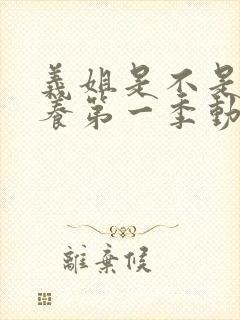 義姐是不是
養第一季動
離棄候